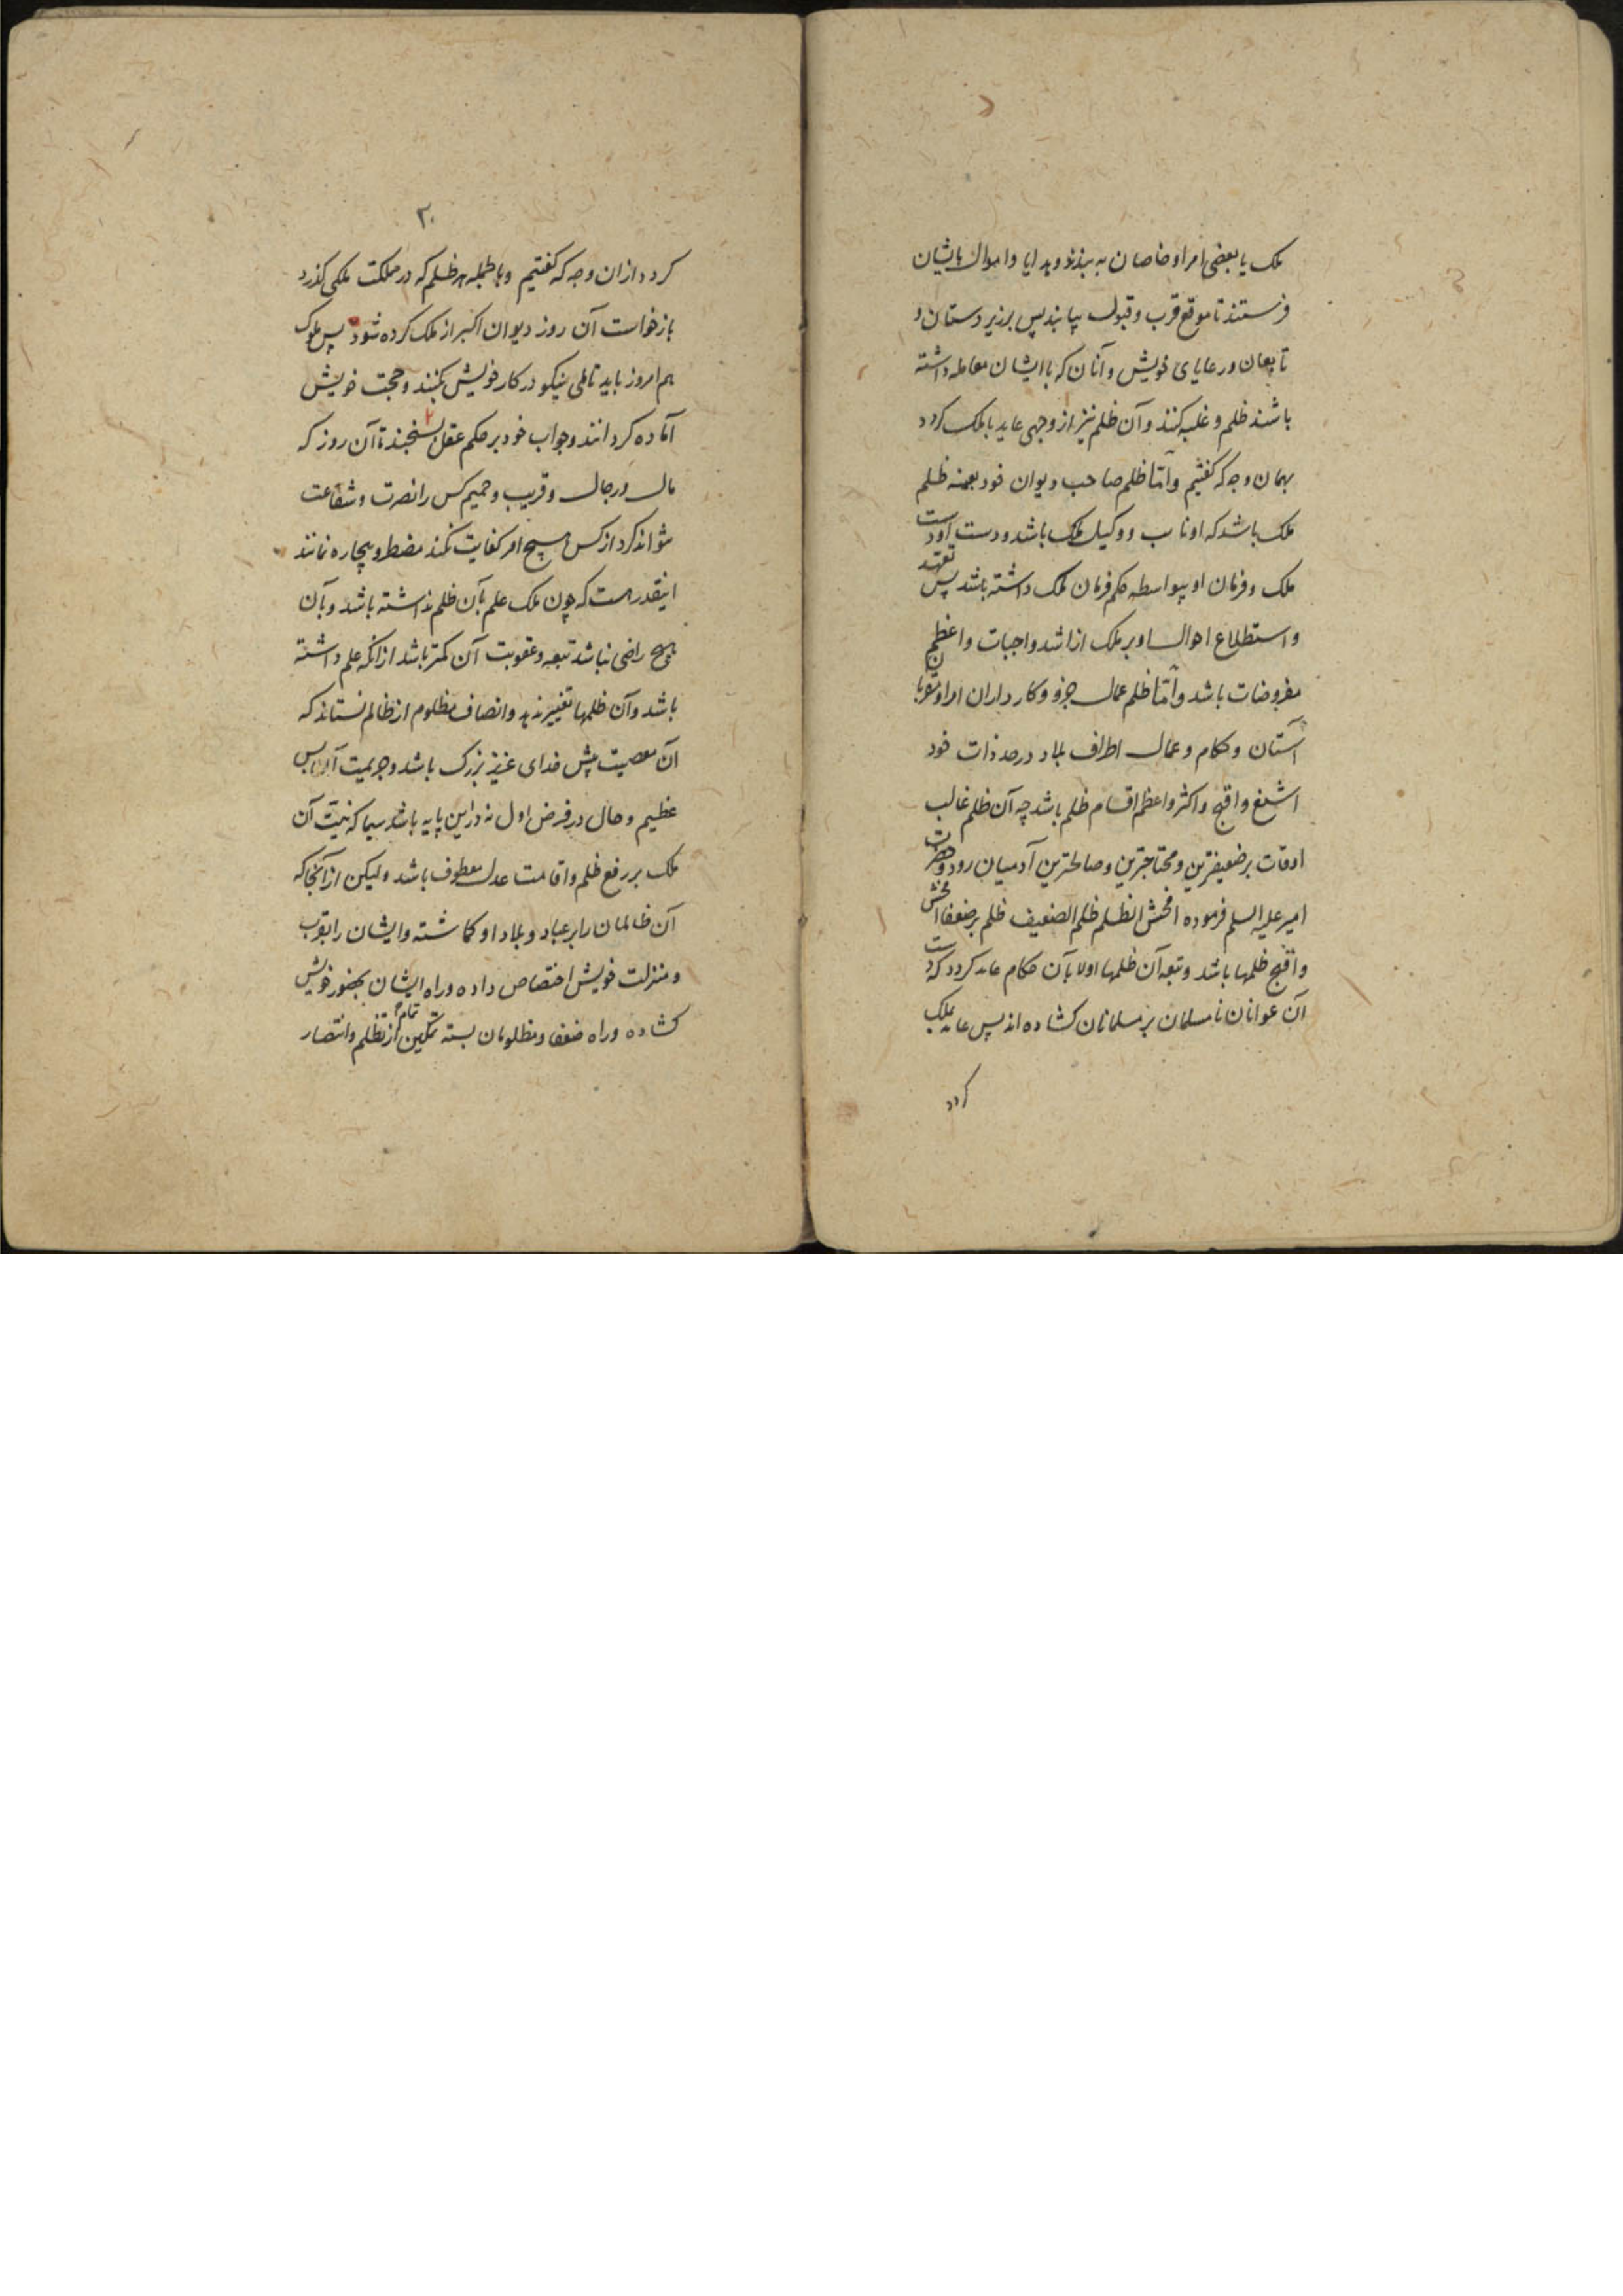 ملک یا بعضی امرا و خاصان به بینند و هدایا و اموال بایشان
فرستند تا موقع قرب و قبول بیابند پس بر زیردستان و
تابعان و رعایای خویش و آنان که با ایشان معامله داشته
باشند ظلم و غلبه کنند و آن ظلم نیز از وجهی عاید با ملک کردد
بهمان وجه که کفتیم و امّا ظلم صاحب دیوان خود بعینه ظلم
ملک باشد که او نایب و وکیل ملک باشد و دست او دست
ملک و فرمان او بیواسطه حکم فرمان ملک داشته باشد پس تعهد
و استطلاع احوال او بر ملک از اشد واجبات و اعظم
مفروضات باشد و امّا ظلم عمال جزو و کارداران امرا و مقربان
آستان و حکام و عمال اطراف بلاد در حد ذات خود
اشنع و اقبح و اکثر و اعظم اقسام ظلم باشد چه آن ظلم غالب
اوقات بر ضعیفترین و محتاجترین و صالحترین آدمیان رود و حضرت
امیر علیه السلم فرموده افحش الظلم ظلم الضعیف ظلم بر ضعفا افحش
و اقبح ظلمها باشد و تبعه آن ظلمها اولا بآن حکام عاید کردد که دست
آن عوانان نامسلمان بر مسلمانان کشاده اند پس عاید بملک
کردد
۳۰
کردد از ان وجه که کفتیم و بالجمله هر ظلم که در مملکت ملکی کذرد
بازخواست آن روز دیوان اکبر از ملک کرده شود پس ملوک
هم امروز باید تاملی نیکو در کار خویش بکنند و حجت خویش
آماده کردانند و جواب خود بر حکم عقل بسنجند تا آن روز که
مال و رجال و قریب و حمیم کس را نصرت و شفاعت
نتواند کرد از کس هیچ امر کفایت نکند مضطر و بیچاره نمانند
اینقدر هست که چون ملک علم بآن ظلم نداشته باشد و بآن
هیچ راضی نباشد تبعه و عقوبت آن کمتر باشد از انکه علم داشته
باشد و آن ظلمها تغییر ندهد و انصاف مظلوم از ظالم نستاند که
آن معصیت پیش خدای عزیز بزرک باشد و جریمت آن بس
عظیم و حال در فرض اول نه در این پایه باشد سیما که نیّت آن
ملک بر رفع ظلم و اقامت عدل معطوف باشد و لیکن از آنجا که
آن ظالمان را بر عباد و بلاد او کماشته و ایشان را بقرب
و منزلت خویش اختصاص داده و راه ایشان بحضور خویش
کشاده و راه ضعفا و مظلومان بسته تمکین تمام از تظلم و انتصار